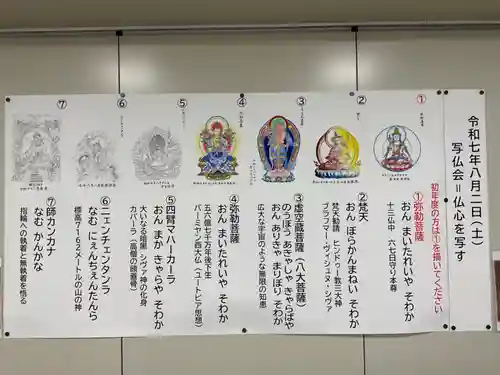 令和七年八月二日（土）
写仏会＝仏心を写す
初年度の方は①を描いてください
①
②
③
④
⑤
⑥
⑦
①弥勒菩薩
おん まいたれいや そわか
十三仏中　六七日守り本尊
②梵天
おん ぼらかんまねい そわか
梵天勧請　ヒンドゥー教三大神
ブラフマー・ヴィシュヌ・シヴァ
③虚空蔵菩薩（八大菩薩）
のうぼう あきゃしゃ きゃらばや
おん ありきゃ まりぼり そわか
広大な宇宙のような無限の知恵
④弥勒菩薩
おん まいたれいや そわか
五六億七千万年後下生
バーミヤン西大仏（ユートピア思想）
⑤四臂マハーカーラ
おん まか きゃらや そわか
大いなる暗黒　シヴァ神の化身
カパーラ（高僧の頭蓋骨）
⑥ニェンチェンタンラ
なむ にぇんちぇんたんら
標高7162メートルの山の神
⑦師カンカナ
なむ かんかな
指輪への執着と無執着を悟る